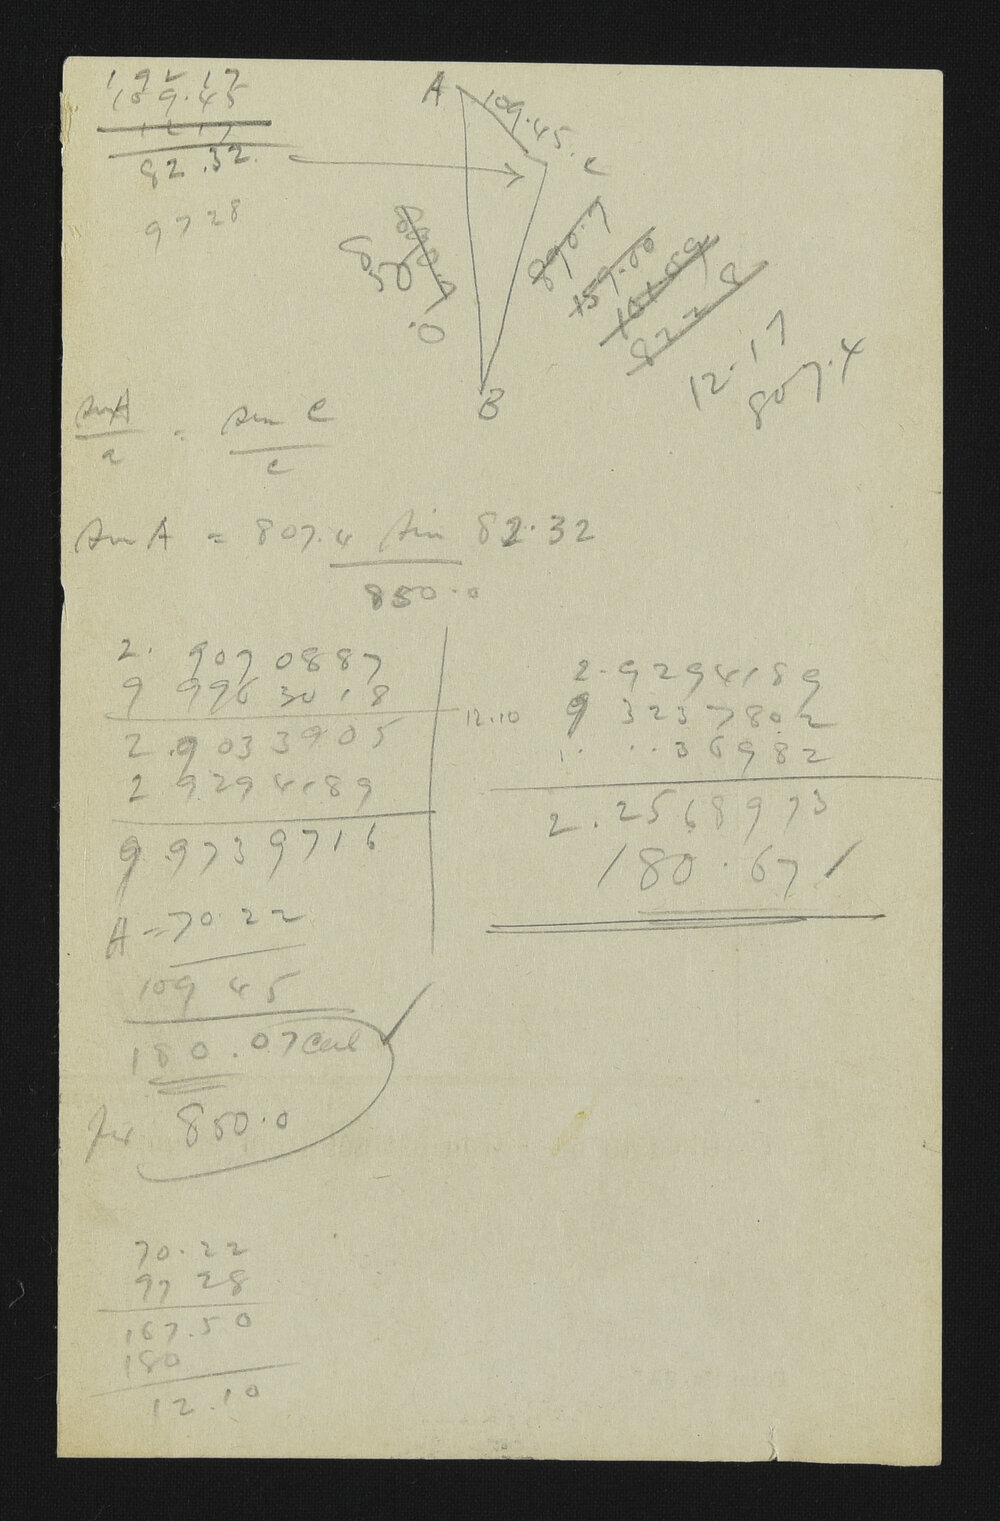 192 17
109.45
82.32.
9728
A
109.45.
C
890.7
850.0
159.00
822 8
12.17
807.4
B
sin A = sin C
a c
sin A = 807.4 sin 82.32
850.0
2. 9070887
9 9963018
2.9033905
2 9294189
9.9739716
A = 70.22
109 45
180.07
for 850.0
12.10
2.9294189
9 3237802
1. ..36982
2.2568973
180.67
70.22
97 28
167.50
180
12.10